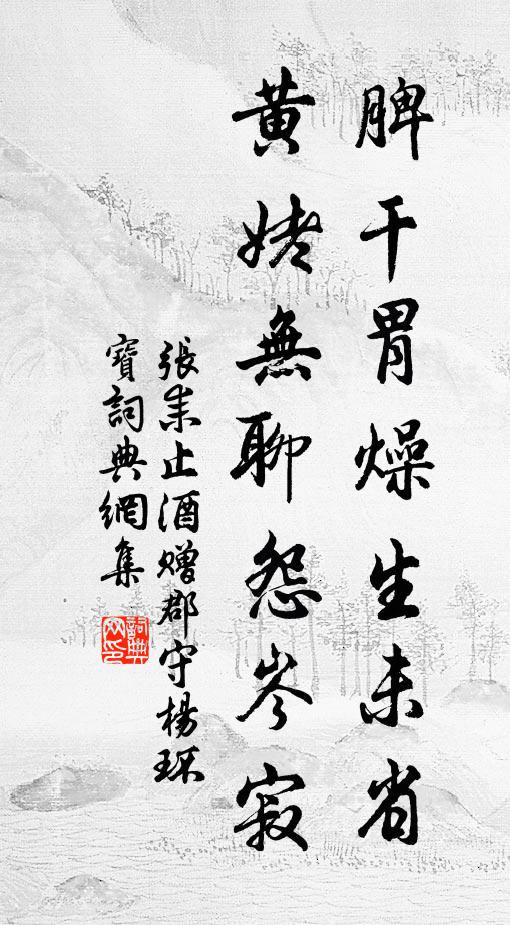 脾干胃燥生未省
黄姥無聊怨岑寂
張耒止酒贈郡守楊瓌
寶詞典網集